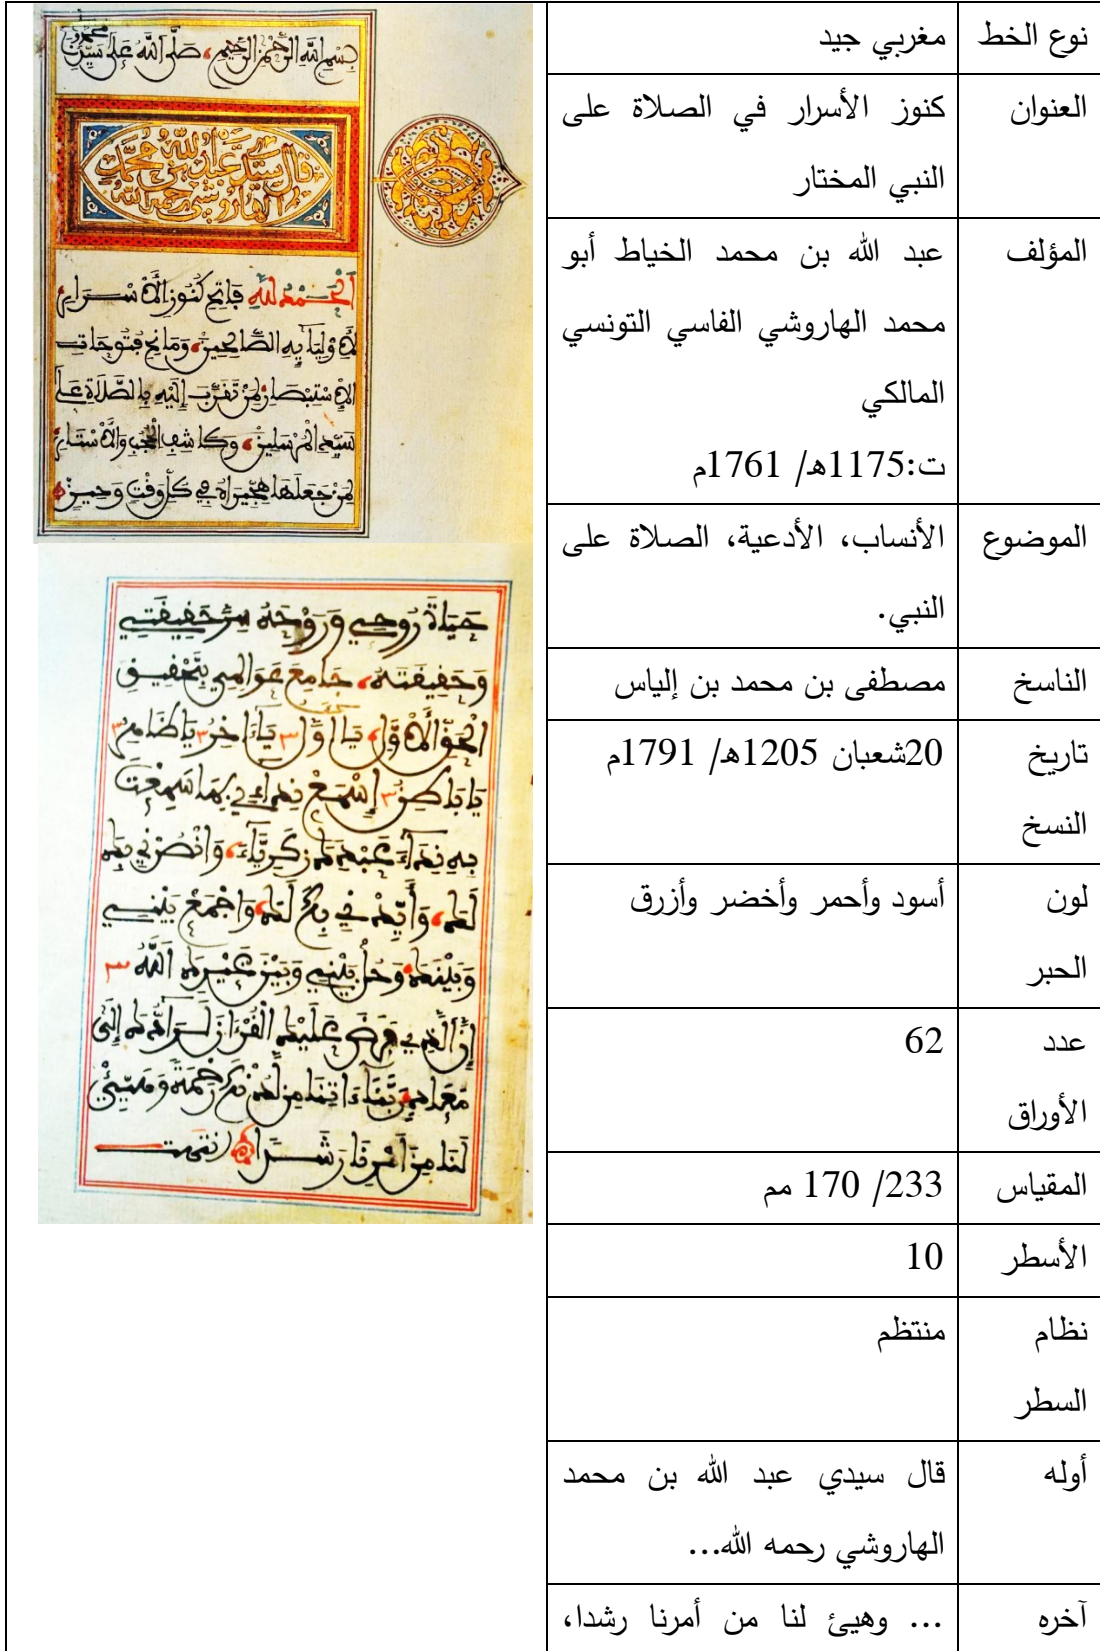 نوع الخط
مغربي جيد
العنوان
كنوز الأسرار في الصلاة على
النبي المختار
المؤلف
عبد الله بن محمد الخياط أبو
محمد الهاروشي الفاسي التونسي
المالكي
ت:1175هـ/ 1761م
الموضوع
الأنساب، الأدعية، الصلاة على
النبي.
الناسخ
مصطفى بن محمد بن إلياس
تاريخ
النسخ
20شعبان 1205هـ/ 1791م
لون
الحبر
أسود وأحمر وأخضر وأزرق
عدد
الأوراق
62
المقياس
233/ 170 مم
الأسطر
10
نظام
السطر
منتظم
أوله
قال سيدي عبد الله بن محمد
الهاروشي رحمه الله...
آخره
... وهيئ لنا من أمرنا رشدا،
بِسْمِ اللهِ الرَّحْمٰنِ الرَّحِيمِ صَلَّى اللهُ عَلَى سَيِّدِنَا مُحَمَّدٍ
قال سيدي عبد الله بن محمد
الهاروشي رحمه الله
اَلْحَمْدُ لِلهِ فَاتِحِ كُنُوزِ الْأَسْرَارِ
لِأَوْلِيَائِهِ الصَّالِحِينَ وَمَانِحِ فُتُوحَاتِ
الِاسْتِبْصَارِ لِمَنْ تَقَرَّبَ إِلَيْهِ بِالصَّلَاةِ عَلَى
سَيِّدِ الْمُرْسَلِينَ وَكَاشِفِ الْحُجُبِ وَالْأَسْتَارِ
لِمَنْ جَعَلَهَا هِجِّيرَاهُ فِي كُلِّ وَقْتٍ وَحِينٍ
حَيَاةَ رُوحِي وَرُوحَهُ سِرَّ حَقِيقَتِي
وَحَقِيقَتَهُ جَامِعَ عَوَالِمِي بِتَحْقِيقِ
الْحَقِّ الْأَوَّلِ يَا أَوَّلُ ٣ يَا ءَاخِرُ ٣ يَا ظَاهِرُ ٣
يَا بَاطِنُ ٣ اِسْمَعْ نِدَاءِي بِمَا سَمِعْتَ
بِهِ نِدَاءَ عَبْدِكَ زَكَرِيَّاءَ وَانْصُرْنِي بِكَ
لَكَ وَأَيِّدْنِي بِكَ لَكَ وَاجْمَعْ بَيْنِي
وَبَيْنَكَ وَحُلْ بَيْنِي وَبَيْنَ غَيْرِكَ اَللهُ ٣
إِنَّ الَّذِي فَرَضَ عَلَيْكَ الْقُرْءَانَ لَرَادُّكَ إِلَى
مَعَادٍ رَبَّنَا ءَاتِنَا مِن لَّدُنْكَ رَحْمَةً وَهَيِّئْ
لَنَا مِنْ أَمْرِنَا رَشَدًا انتهت